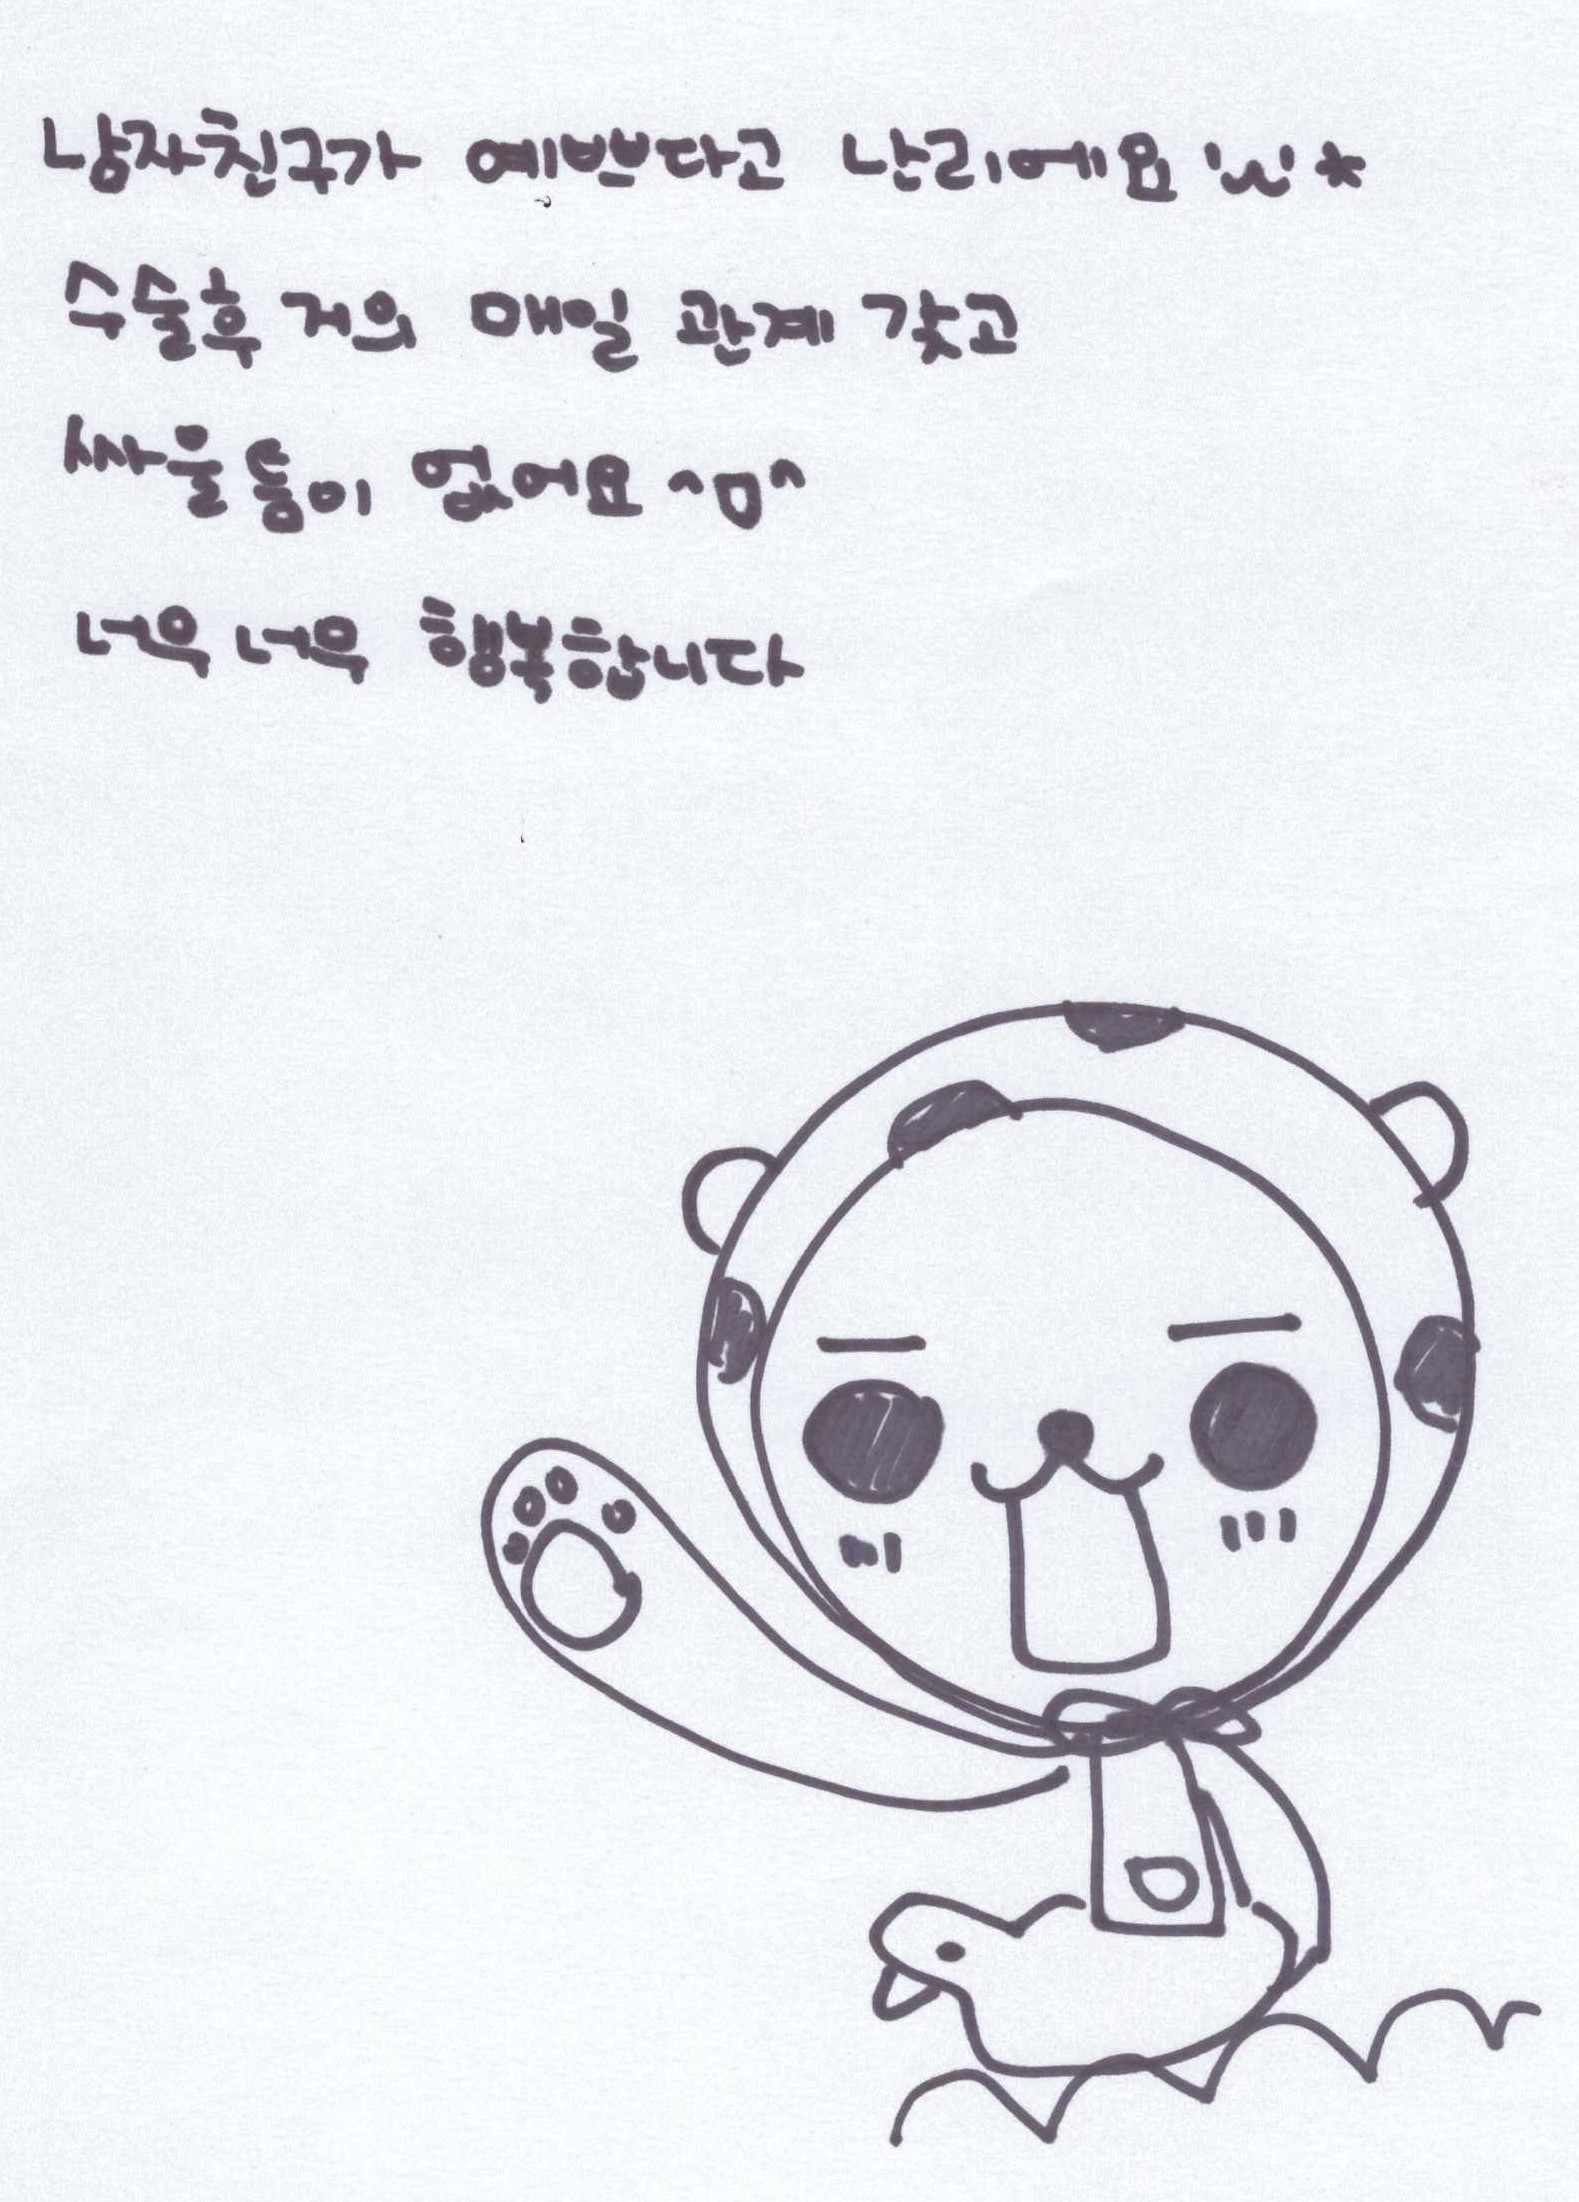 남자친구가 예쁘다고 난리에요 'ω'*
수술후 거의 매일 관계 갖고
싸울 틈이 없어요 ^ㅁ^
너무 너무 행복합니다